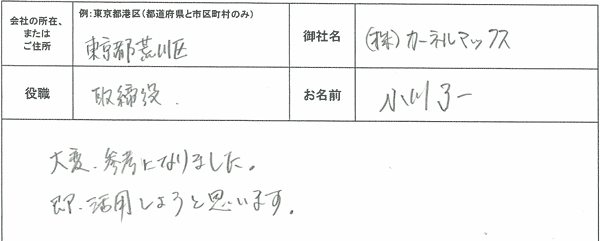 会社の所在、
または
ご住所
例:東京都港区(都道府県と市区町村のみ)
東京都荒川区
御社名
(株)カーネルマックス
役職
取締役.
お名前
小川
大変、参考になりました。
即、活用しようと思います。